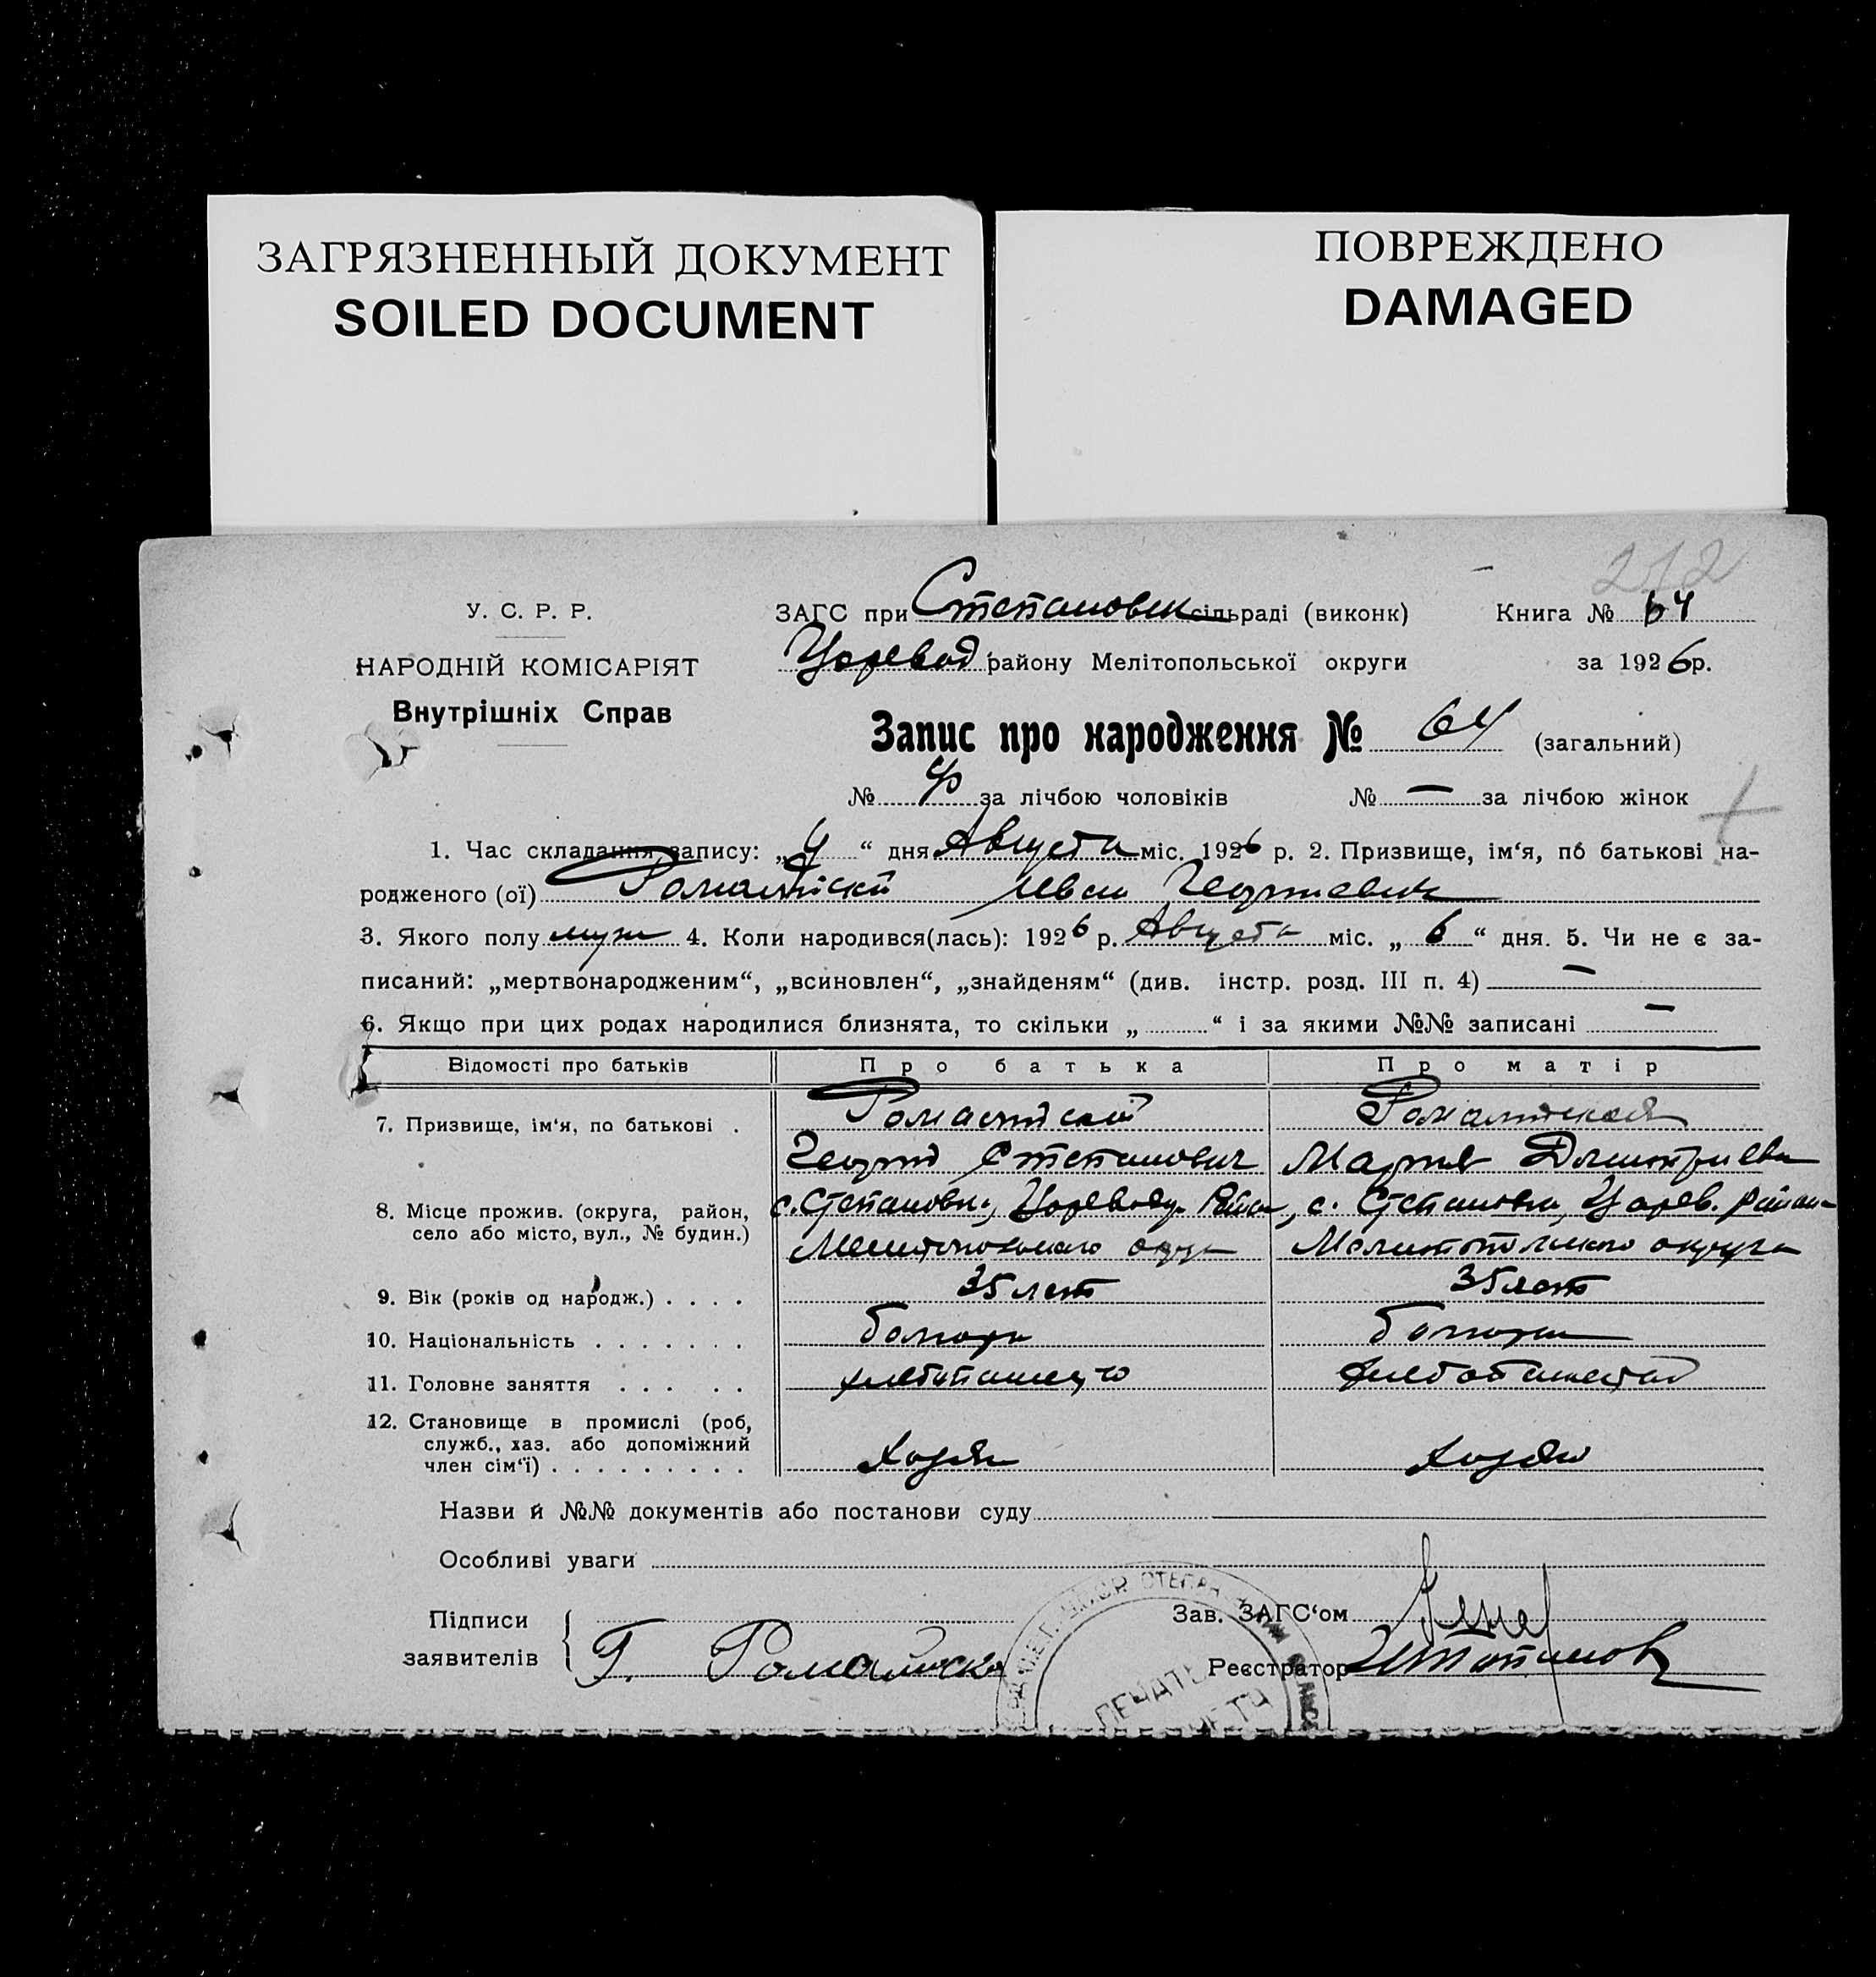 ЗАГРЯЗНЕННЫЙ ДОКУМЕНТ
SOILED DOCUMENT
ПОВРЕЖДЕНО
DAMAGED
212
У. С. Р. Р.
НАРОДНІЙ КОМІСАРІЯТ
Внутрішніх Справ
ЗАГС при Степановск сільраді (виконк) Книга № 64
Царевод району Мелітопольської округи за 1926 р.
Запис про народження № 64 (загальний)
№ за лічбою чоловіків № — за лічбою жінок
1. Час складання запису: „ “ дня Августа міс. 1926 р. 2. Призвище, ім‘я, по батькові на-
родженого (ої) Иван Георгиевич
3. Якого полу муж 4. Коли народився(лась): 1926 р. Августа міс. „ 6 “ дня. 5. Чи не є за-
писаний: „мертвонародженим“, „всиновлен“, „знайденям“ (див. інстр. розд. III п. 4) —
6. Якщо при цих родах народилися близнята, то скільки „ “ і за якими №№ записані —
Відомості про батьків Про батька Про матір
7. Призвище, ім‘я, по батькові .
Георгий Степанович Мария Дмитриевна
8. Місце прожив. (округа, район, село або місто, вул., № будин.) с. Степановка, Царевод. Район, с. Степановка, Царев. района
Мелитопольского округа Мелитопольского округа
9. Вік (років од народж.) . . . . 35 лет 35 лет
10. Національність . . . . . . . болгары болгары
11. Головне заняття . . . . .
12. Становище в промислі (роб,
служб., хаз. або допоміжний
член сім‘ї) . . . . . . . . . Хозяин Хозяй
Назви й №№ документів або постанови суду
Особливі уваги
Підписи
заявителів
Г.
Зав. ЗАГС‘ом
Реєстратор
ПЕЧАТЬ